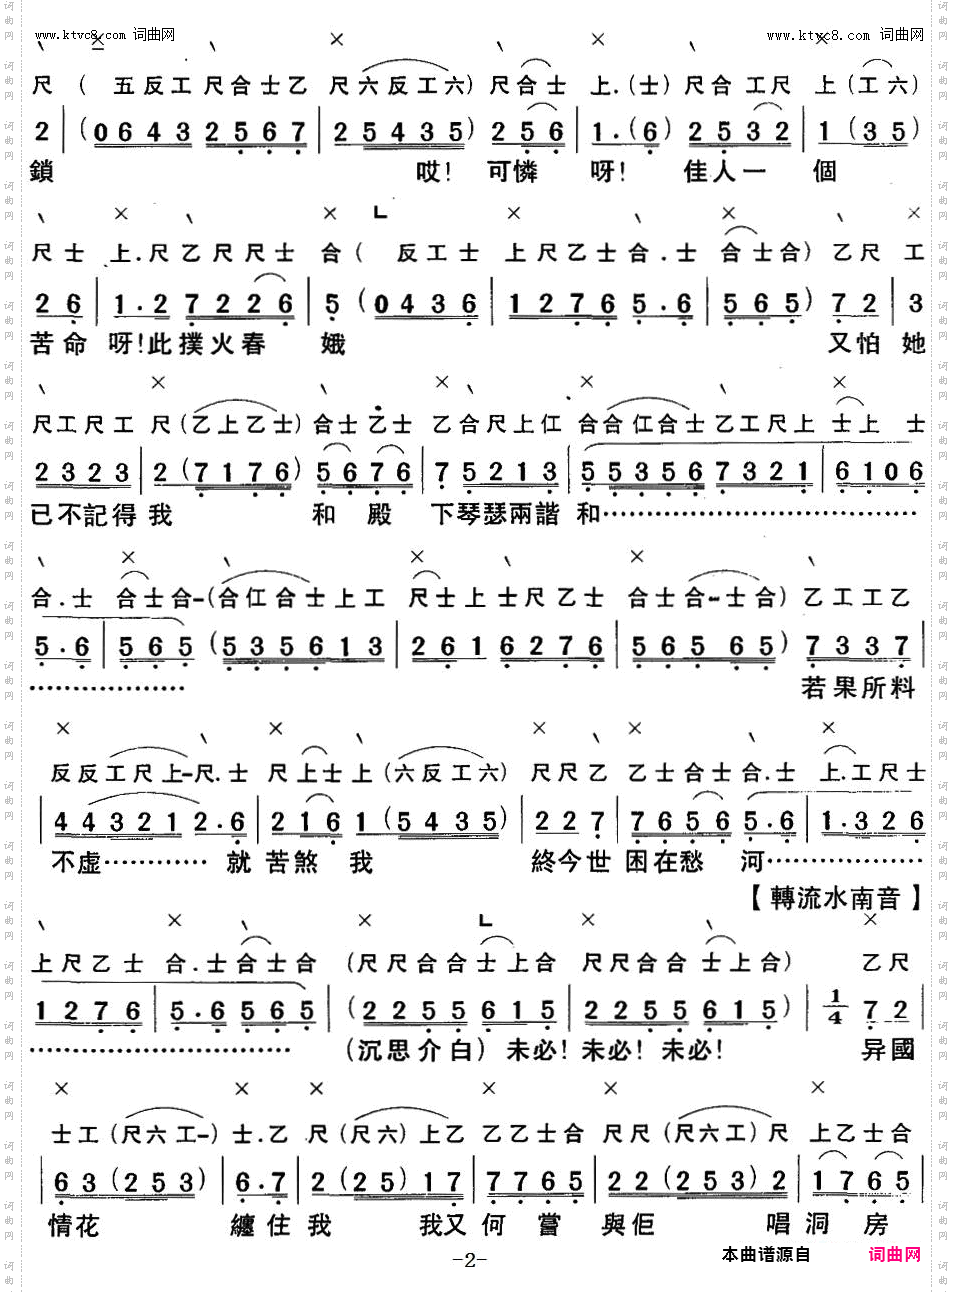 www.ktvc8.com 词曲网 www.ktvc8.com 词曲网
尺 ( 五反工 尺合士乙 尺六反工六) 尺合士 上.(士) 尺合 工尺 上 (工六)
2 | (0643 2567 | 25435) 256 | 1.(6) 2532 | 1 (35)
鎖 哎! 可憐 呀! 佳人一 個
尺 士 上.尺 乙 尺 尺 士 合 ( 反工士 上尺乙士合.士 合士合) 乙尺 工
26 | 1.27226 | 5 (0436 | 12765.6 | 565) 72 | 3
苦命 呀!此撲火春 娥 又怕 她
尺工尺工 尺(乙上乙士) 合士乙士 乙合尺上仜 合合仜合士乙工尺上 士上 士
2323 | 2 (7176) 5676 | 75213 | 553567321 | 6106
已不記得 我 和 殿 下琴瑟兩諧 和…………………………
合.士 合士合-(合仜合士上工 尺士上士尺乙士 合士合-士合) 乙工工乙
5.6 | 565 (535613 | 2616276 | 56565) 7337 |
…………… 若果所料
反反工尺上-尺.士 尺上士上(六反工六) 尺尺乙 乙士合士合.士 上.工尺士
| 443212.6 | 2161 (5435) | 227 | 76565.6 | 1.326
不虛………… 就 苦煞 我 終今世 困在愁 河………………
【轉流水南音】
上尺乙士 合.士合士合 (尺尺合合士上合 尺尺合合士上合) 乙尺
1276 | 5.6565 | (2255615 | 2255615) | 1/4 72
…………………………… (沉思介白) 未必! 未必! 未必! 异國
士工(尺六工-) 士.乙 尺(尺六)上乙 乙乙士合 尺尺(尺六工)尺 上乙士合
| 63 (253) | 6.7 | 2 (25) 17 | 7765 | 22 (253) 2 | 1765
情花 纏住 我 我又 何嘗 與佢 唱洞 房
-2-
本曲谱源自 词曲网